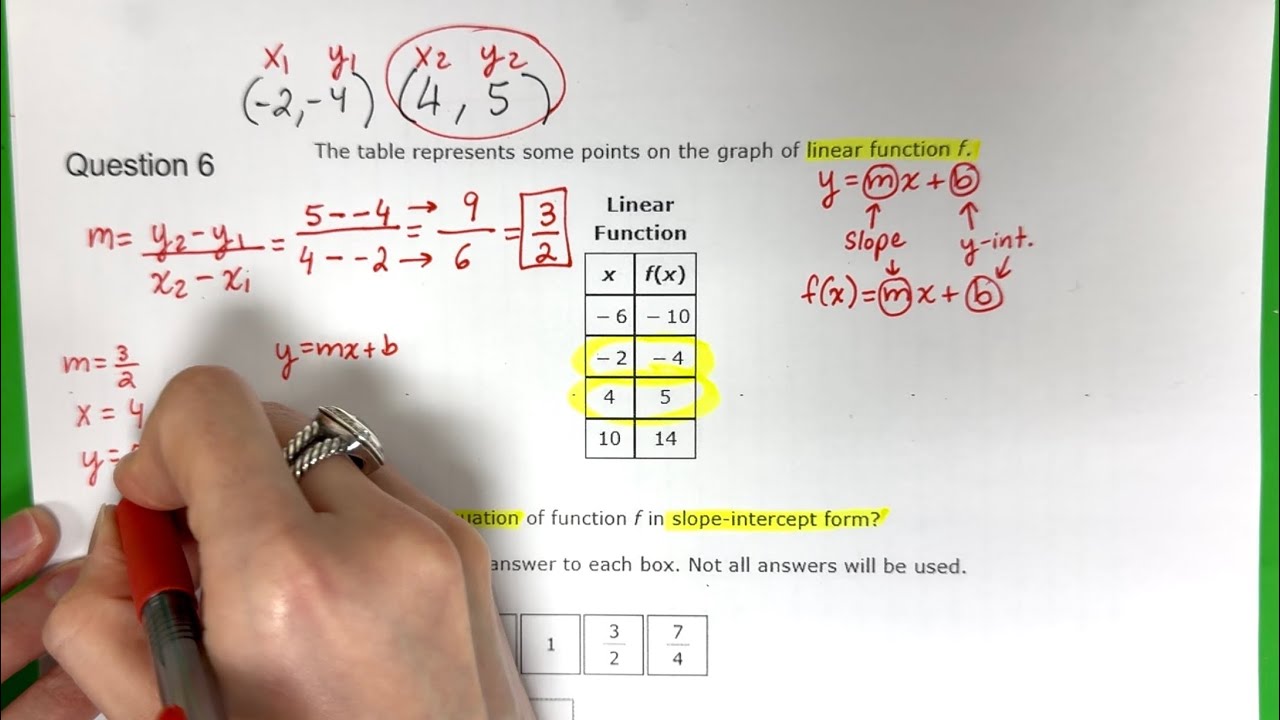 x₁ y₁ x₂ y₂
(-2,-4) (4, 5)
Question 6
The table represents some points on the graph of linear function f.
y = mx + b
slope y-int.
f(x) = mx + b
m = y₂ - y₁ / x₂ - x₁ = 5 - -4 / 4 - -2 → → = 9/6 = 3/2
Linear
Function
x f(x)
-6 -10
-2 -4
4 5
10 14
m = 3/2
x = 4
y =
y = mx + b
of function f in slope-intercept form?
answer to each box. Not all answers will be used.
1 3/2 7/4